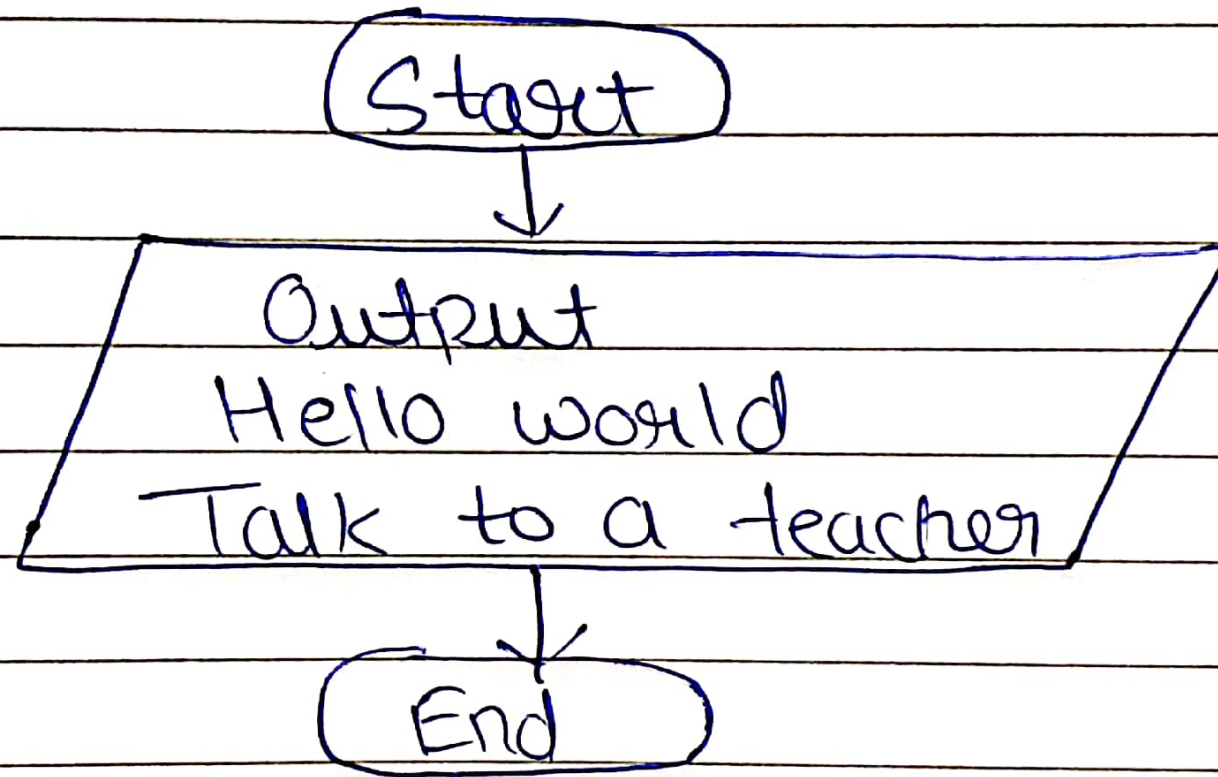 Start
Output
Hello world
Talk to a teacher
End